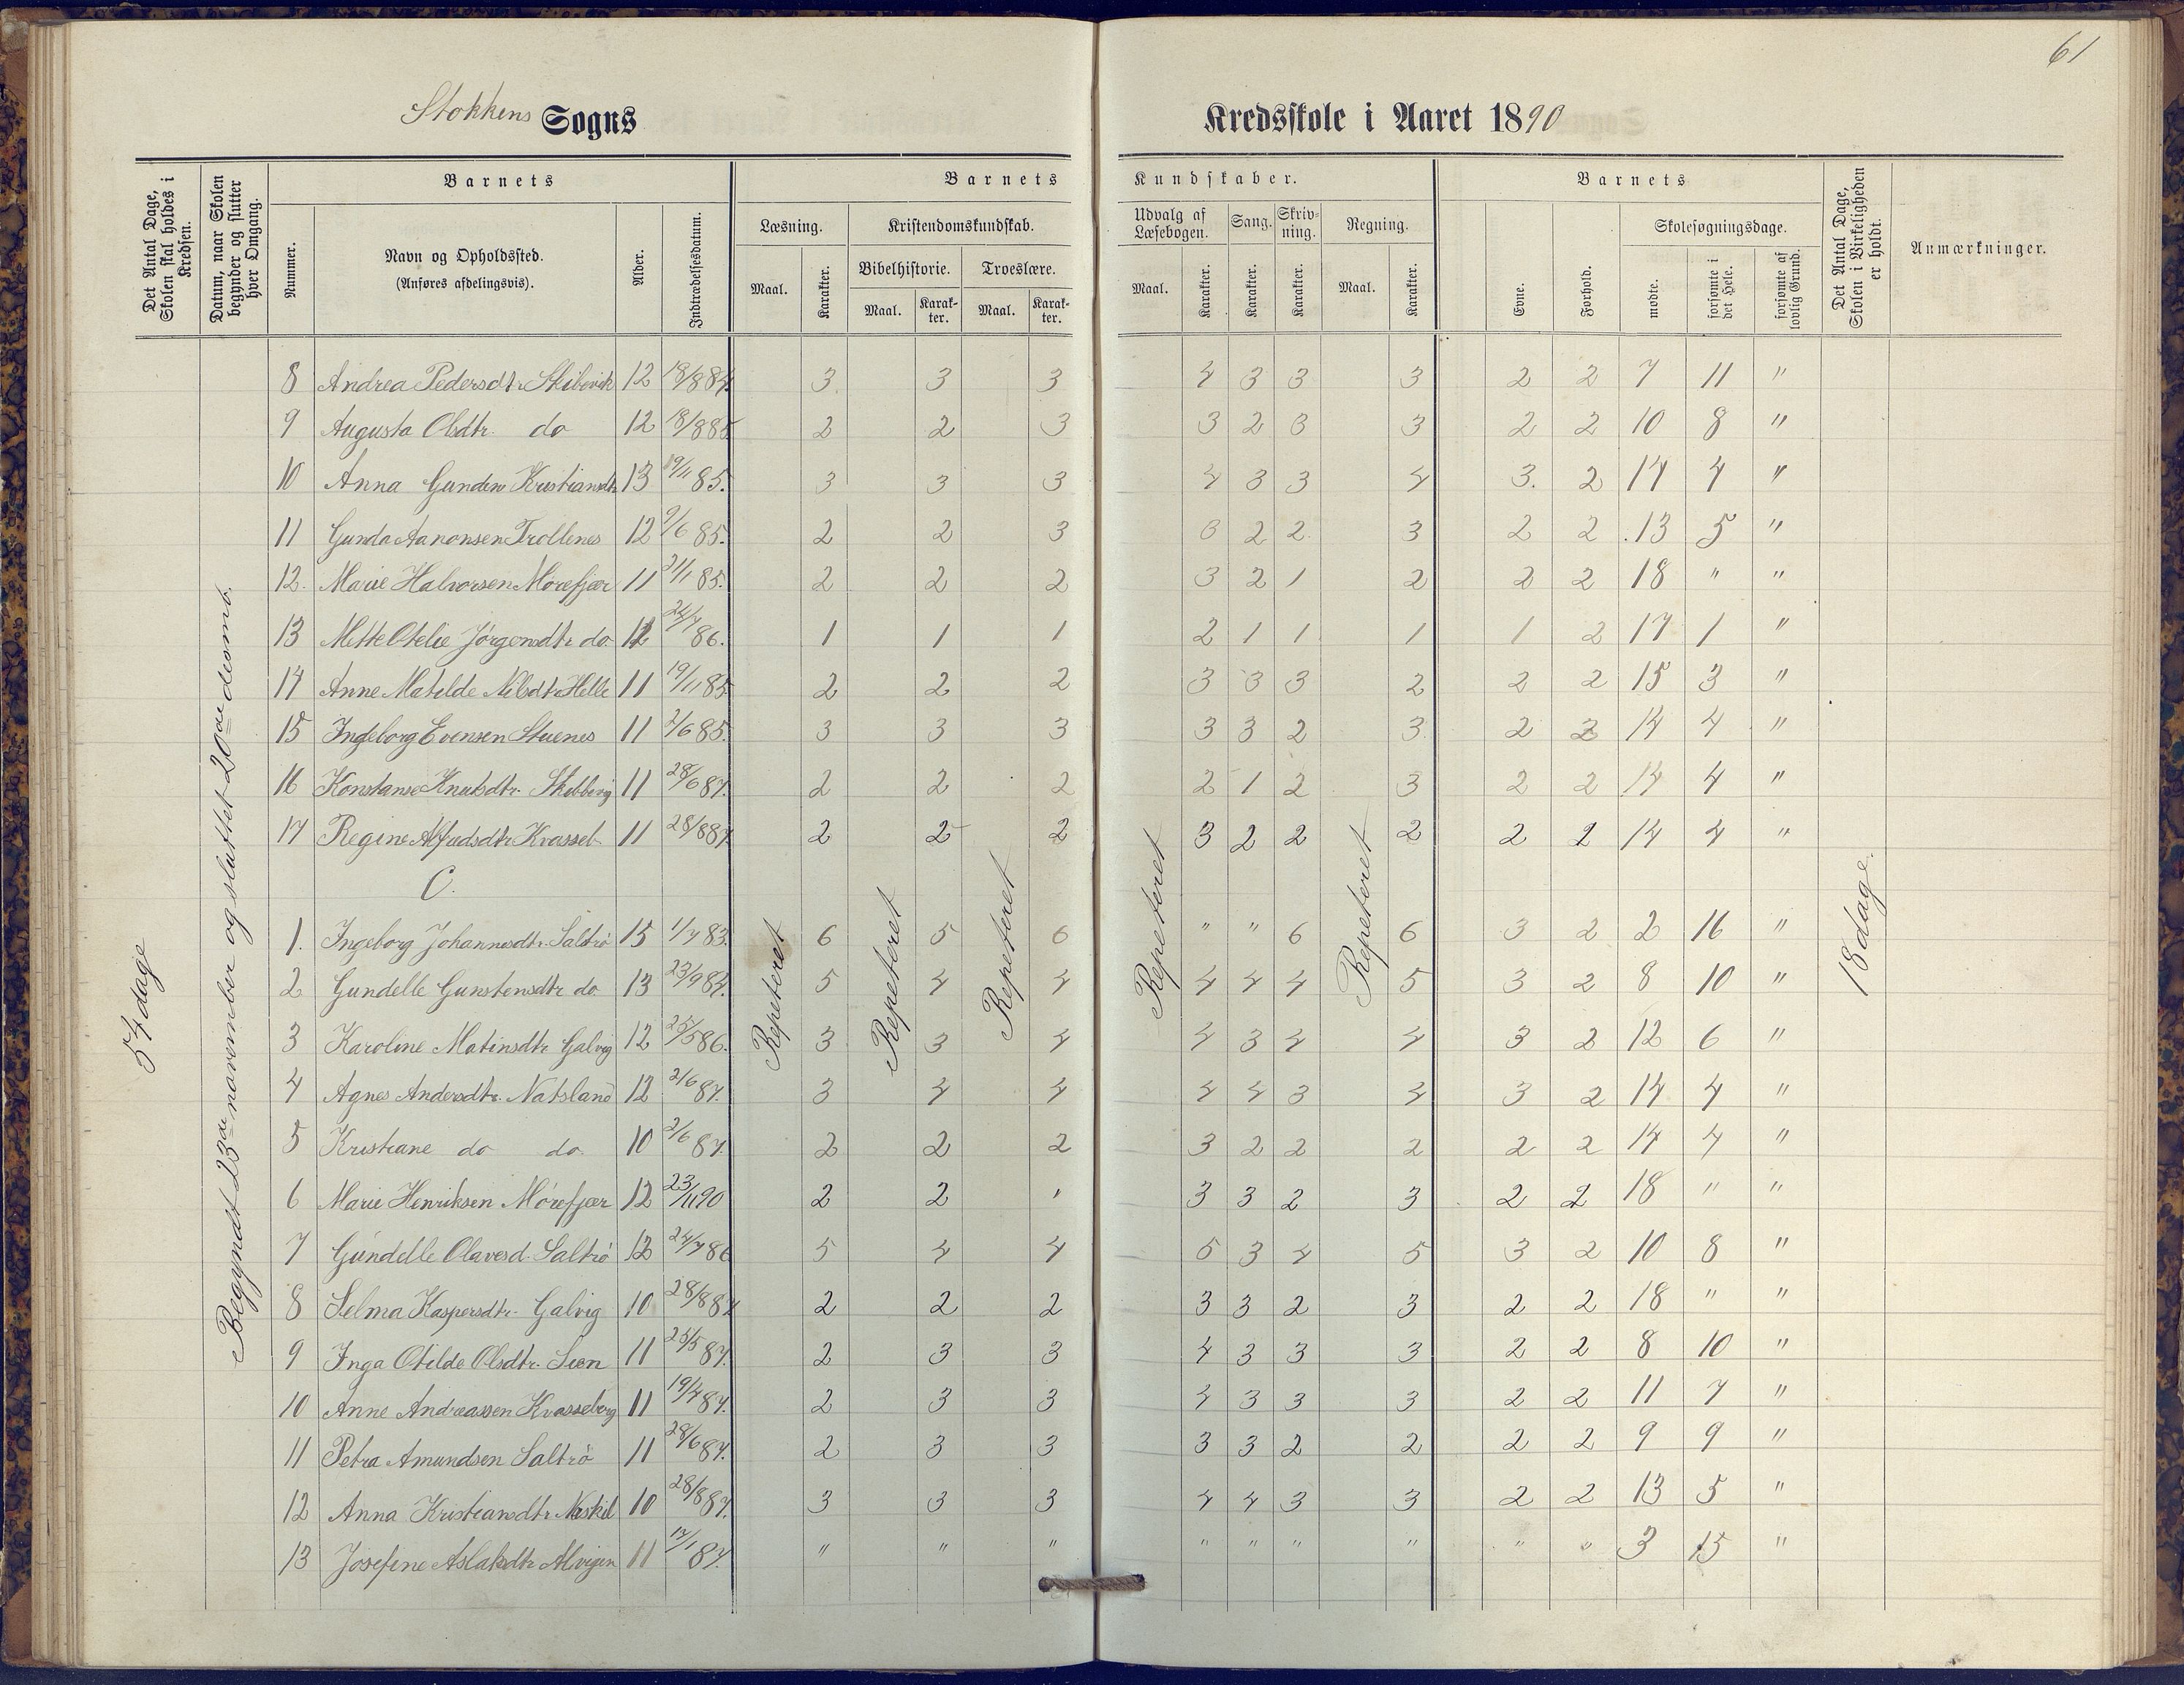 61
Stokkens Sogns
Kredsskole i Aaret 1890
Det Antal Dage, Skolen skal holdes i Kredsen.
Datum, naar Skolen begynder og slutter hver Omgang.
Barnets
Nummer.
Navn og Opholdssted.
(Anføres afdelingsvis).
Alder.
Indtrædelsesdatum.
Barnets
Kundskaber.
Læsning.
Maal.
Karakter.
Kristendomskundskab.
Bibelhistorie.
Maal.
Karakter.
Troeslære.
Maal.
Karakter.
Udvalg af Læsebogen.
Maal.
Karakter.
Sang.
Karakter.
Skrivning.
Karakter.
Regning.
Maal.
Karakter.
Barnets
Evne.
Forhold.
Skolesøgningsdage.
mødte.
forsømte i det Hele.
forsømte af lovlig Grund.
Det Antal Dage, Skolen i Virkeligheden er holdt.
Anmærkninger.
54 dage
Begyndt 23de november og sluttet 20de desemb.
8 Andrea Pedersdtr. Skibevik 12 18/8 84. 3 3 3 4 3 3 3 2 2 7 11 "
9 Augusta Olsdtr. do 12 18/8 85 2 2 3 3 2 3 3 2 2 10 8 "
10 Anna Gunden Kristiansdtr 13 19/11 85. 3 3 3 4 3 3 4 3. 2 14 4 "
11 Gunda Aanonsen Trollenes 12 9/6 85. 2 2 3 3 2 2 3 2 2 13 5 "
12. Marie Halvorsen Mørefjær 11 21/1 85. 2 2 2 3 2 1 2 2 2 18 " "
13 Mette Otelie Jørgensdtr do. 12 24/7 86. 1 1 1 2 1 1 1 1 2 17 1 "
14 Anne Matilde Nilsdtr Helle 11 19/11 85 2 2 2 3 3 3 2 2 2 15 3 "
15 Ingeborg Evensen Stuenes 11 2/6 85. 3 3 3 3 3 2 3 2 2 14 4 "
16 Konstanse Knutsdtr. Skibbvig 11 28/6 87. 2 2 2 2 1 2 3 2 2 14 4 "
17 Regine Alfredsdtr. Kvasseb. 11 28/8 87. 2 2 2 3 2 2 2 2 2 14 4 "
C.
1. Ingeborg Johannesdtr. Saltrø 15 1/7 83. 6 5 6 " " 6 6 3 2 2 16 "
2 Gundelle Gunstensdtr do. 13 23/9 84. 5 4 4 4 4 4 5 3 2 8 10 "
3 Karoline Matinsdtr Galvig 12 25/5 86. 3 3 4 4 3 4 4 3 2 12 6 "
4 Agnes Andersdtr. Natsland 12 2/6 87. 3 4 4 4 4 3 4 3 2 14 4 "
5 Kristiane do do. 10 2/6 87. 2 2 2 3 2 2 2 2 2 14 4 "
6 Marie Henriksen Mørefjær 12 23/11 90 2 2 " 3 3 2 3 2 2 18 " "
7 Gundelle Olavesd. Saltrø 12 24/7 86 5 4 4 5 3 4 5 3 2 10 8 "
8 Selma Kaspersdtr. Galvig 10 28/8 87 2 2 2 3 3 2 3 2 2 18 " "
9 Inga Otilde Olsdtr. Sven 11 25/5 87. 2 3 3 4 3 3 3 2 2 8 10 "
10 Anne Andreassen Kvasseberg 11 19/4 87. 2 3 3 4 3 3 3 2 2 11 7 "
11 Petra Amundsen Saltrø 11 28/6 87. 2 3 3 3 3 2 2 2 2 9 9 "
12 Anna Kristiansdtr Neskil 10 28/8 87. 3 3 3 4 4 3 3 2 2 13 5 "
13 Josefine Aslaksdtr Alvigen 11 17/1 87. " " " " " " " " " 3 15 "
Repeteret
Repeteret
Repeteret
Repeteret
Repeteret
18 dage.